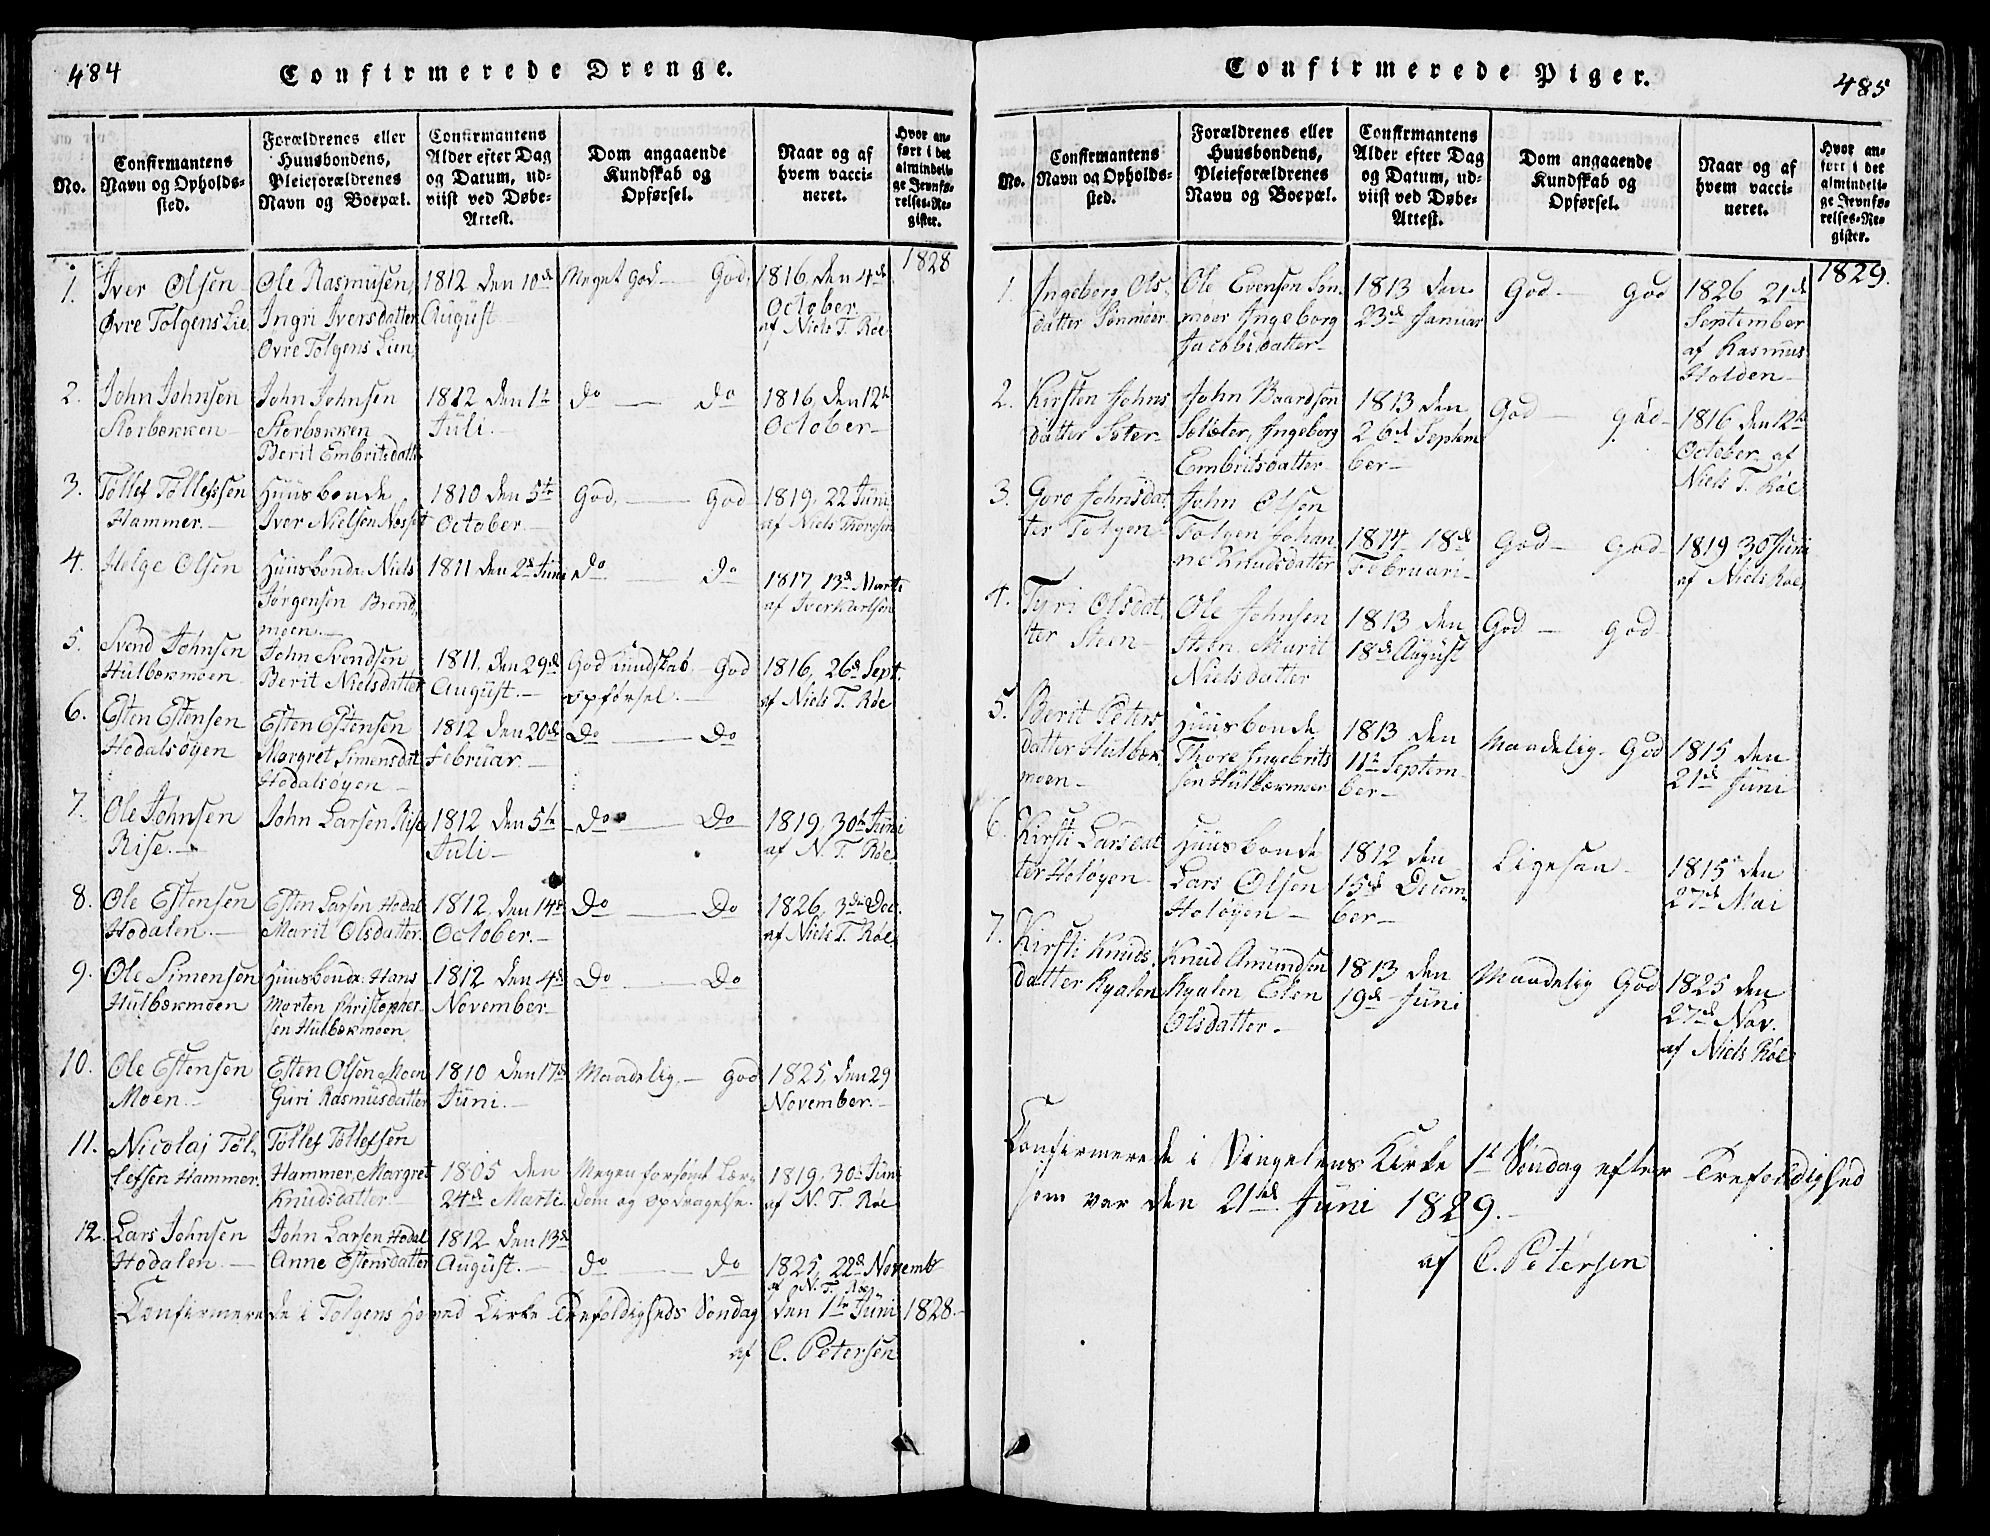 484
Confirmerede Drenge.
No.
Confirmantens
Navn og Opholds-
sted.
Forældrenes eller
Huusbondens,
Pleieforældrenes
Navn og Boepæl.
Confirmantens
Alder efter Dag
og Datum, ud-
viist ved Døbe-
Attest.
Dom angaaende
Kundskab og
Opførsel.
Naar og af
hvem vacci-
neret.
Hvor an-
ført i det
almindeli-
ge Jevnfø-
relses-Re-
gister.
1828
1.
Iver Olsen
Øvre Tolgens Lie
Ole Rasmusen,
Ingri Iversdatter
Øvre Tolgens Lien
1812 den 10de
August
Meget God — God
1816, den 4de
October
af Niels T. Røe
2.
John Johnsen
Storbækken
John Johnsen
Storbækken
Berit Embritsdatter
1812 den 1te
Juli.
do — do
1816, den 12te
October
3.
Tollef Tollefssen
Hammer.
Huusbonde
Iver Nielsen
1810 den 5te
October
God, — God
1819, 22 Juni
af Niels Thoresen
4.
Helge Olsen
Huusbonde Niels
Jørgensen Brend-
moen.
1811 den 2de Juni
do — do
1817 13de Marti
af Iver Karlsen
5.
Svend Johnsen
Hulbækmoen
John Svendsen
Berit Nielsdatter
1811, den 29de
August.
God Kundskab God
opførsel.
1816, 26de Sept.
af Niels T. Røe
6.
Esten Estensen
Hodalsøyen
Esten Estensen
Margret Simensdat
Hodalsøyen
1812 den 20de
Februar.
Do — Do
7.
Ole Johnsen
Rise.
John Larsen Rise
1812, den 5te
Juli
Do — Do
1819, 30te Juni
af N. T. Røe
8.
Ole Estensen
Hodalen.
Esten Larsen Hodal
Marit Olsdatter
1812, den 14de
October.
Do — Do
1826, 3die Dec.
af Niels T. Røe
9.
Ole Simensen
Hulbækmoen
Huusbonde Hans
Morten Christopher-
sen Hulbækmoen
1812 den 4de
November
Do — Do
10.
Ole Estensen
Moen.
Esten Olsen Moen
Guri Rasmusdatter
1810 den 17de
Juni.
Maadelig, — God
1825, den 29
November.
11.
Nicolai Tol-
lefsen Hammer.
Tollef Tollefsen
Hammer, Margret
Knudsdatter
1805 den
24de Marti
Megen forsømt Lær-
dom og Opdragelse.
1819, 30te Juni
af N. T. Røe
12.
Lars Johnsen
Hodalen.
John Larsen Hodal
Anne Estensdatter
1812 den 13de
August.
do — do
1825, 22de Novemb
af N. T. Røe
Confirmerede i Tolgens Hoved Kirke Trefoldigheds Søndag den 1te Juni 1828.
af C. Petersen
485
Confirmerede Piger.
No.
Confirmantens
Navn og Opholds-
sted.
Forældrenes eller
Huusbondens,
Pleieforældrenes
Navn og Boepæl.
Confirmantens
Alder efter Dag
og Datum, ud-
viist ved Døbe-
Attest.
Dom angaaende
Kundskab og
Opførsel.
Naar og af
hvem vacci-
neret.
Hvor an-
ført i det
almindeli-
ge Jevnfø-
relses-Re-
gister.
1829.
1.
Ingeborg Ols-
datter Sønmoer
Ole Evensen Søn-
moer Ingeborg
Jacobsdatter
1813 den
23de Januar
God — God
1826 21de
September
af Rasmus
Holden
2.
Kirsten Johns
datter
John Baardsen
Ingeborg
Embritsdatter
1813 den
26de Septem
ber
God — god
1816 den 12te
October af
Niels T. Røe
3.
Goro Johnsdat
ter Tolgen
John Olsen
Tolgen Johan
ne Knudsdatter
1814 18de
Februari
God — God
1819 30 Juni
af Niels Røe
4.
Tyri Olsdat
ter Steen
Ole Johnsen
Steen, Marit
Nielsdatter
1813 den
18de August
God — God
5.
Berit Peters
datter Hulbæk
moen
Huusbonde
Thore Ingebrits
sen Hulbækmoer
1813 den
11te Septem-
ber
Maadelig. God
1815 den
21de Juni
6.
Kirsti Larsdat
ter Holøyen
Huusbonde
Lars Olsen
Holøyen
1812 den
15de Decem-
ber
Ligesaa
1815 den
27de Mai
7.
Kirsti Knuds-
datter Ryalen
Knud Amundsen
Ryalen Elen
Olsdatter.
1813 den
19de Juni
Maadelig God
1825 den
27de Nov.
af Niels Røe
Confirmerede i Vingelens Kirke 1te Søndag efter Trefoldighed
som var den 21de Juni 1829.
af C. Petersen